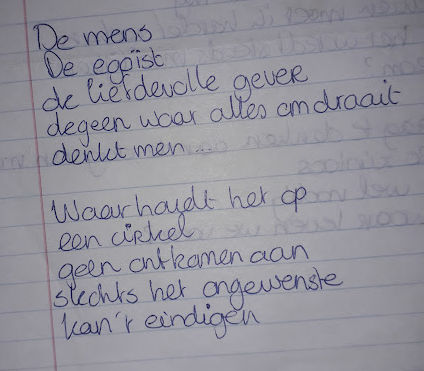 De mens
De egoïst
de liefdevolle gever
degeen waar alles om draait
denkt men ...
Waar houdt het op
een cirkel
geen ontkomen aan
slechts het ongewenste
kan 'r eindigen